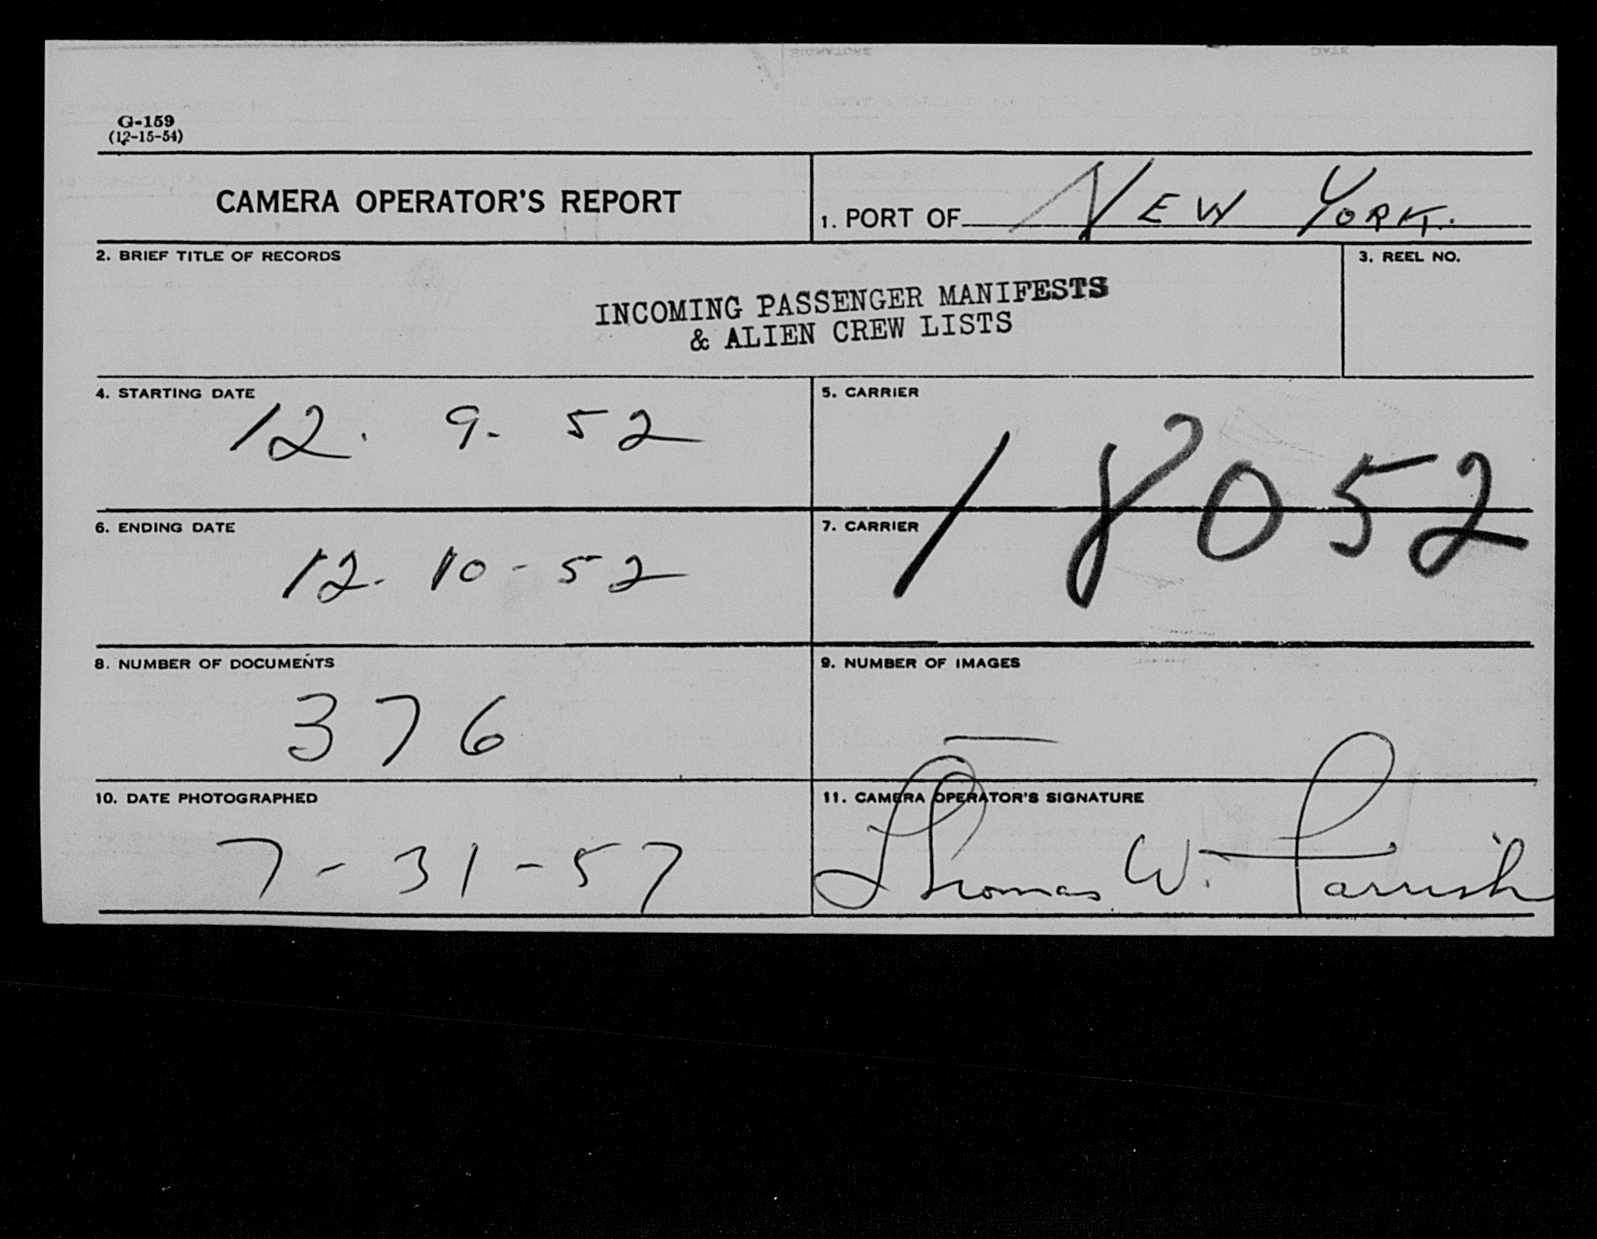 G-159
(12-15-54)
CAMERA OPERATOR'S REPORT
1. PORT OF NEW YORK.
2. BRIEF TITLE OF RECORDS
INCOMING PASSENGER MANIFESTS
& ALIEN CREW LISTS
3. REEL NO.
4. STARTING DATE
12. 9. 52
5. CARRIER
18052
6. ENDING DATE
12. 10 - 52
7. CARRIER
8. NUMBER OF DOCUMENTS
376
9. NUMBER OF IMAGES
—
10. DATE PHOTOGRAPHED
7-31-57
11. CAMERA OPERATOR'S SIGNATURE
Thomas W. Parrish